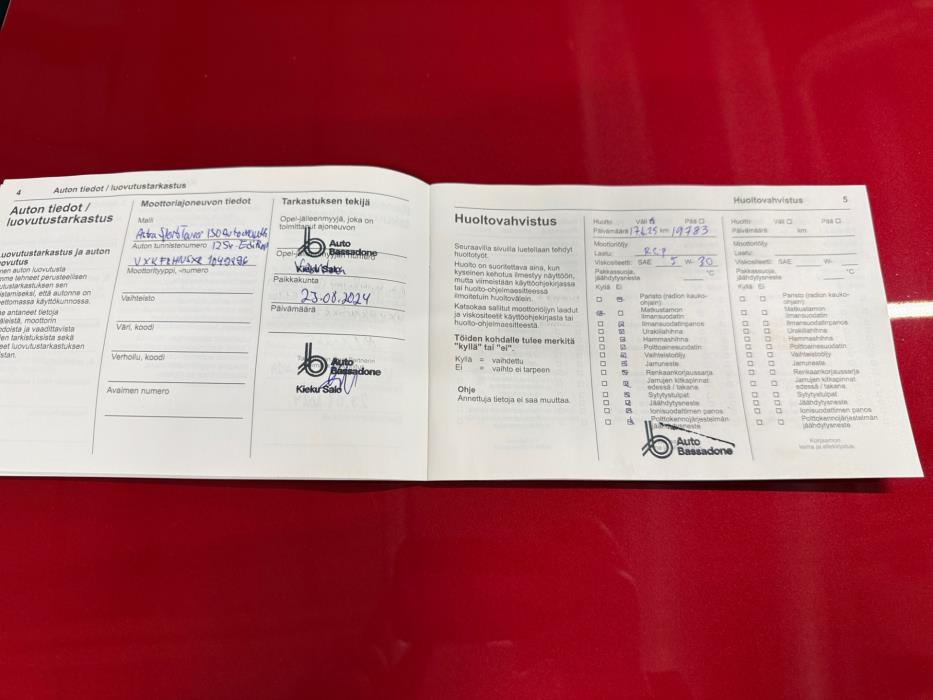 4
Auton tiedot / luovutustarkastus
Auton tiedot /
luovutustarkastus
uovutustarkastus ja auton
ovutus
nen auton luovutusta
mme tehneet perusteellisen
utustarkastuksen sen
istamiseksi, että autonne on
eettomassa käyttökunnossa.
me antaneet tietoja
äleistä, moottorin
hdoista ja vaadittavista
en tarkistuksista sekä
eet luovutustarkastuksen
istan.
Moottoriajoneuvon tiedot
Malli
Auton tunnistenumero
Moottorityyppi, -numero
Vaihteisto
Väri, koodi
Verhoilu, koodi
Avaimen numero
Tarkastuksen tekijä
Opel-jälleenmyyjä, joka on
toimittanut ajoneuvon
Auto
Bassadone
Paikkakunta
23.08.2024
Päivämäärä
Auto
Bassadone
Kieku Salo
Huoltovahvistus
5
Huoltovahvistus
Seuraavilla sivuilla luetellaan tehdyt
huoltotyöt.
Huolto on suoritettava aina, kun
kyseinen kehotus ilmestyy näyttöön,
mutta viimeistään käyttöohjekirjassa
tai huolto-ohjelmaesitteessä
ilmoitetuin huoltovälein.
Katsokaa sallitut moottoriöljyn laadut
ja viskositeetit käyttöohjekirjasta tai
huolto-ohjelmaesitteestä.
Töiden kohdalle tulee merkitä
"kyllä" tai "ei".
Kyllä = vaihdettu
Ei = vaihto ei tarpeen
Ohje
Annettuja tietoja ei saa muuttaa.
Huolto Väli Pää
Päivämäärä 17.6.25 km 19783
Moottoriöljy
Laatu:
Viskositeetti: SAE 5 W- 30
Pakkassuoja,
jäähdytysneste °C
Kyllä Ei
Paristo (radion kauko-
ohjain)
Matkustamon
ilmansuodatin
Ilmansuodatinpanos
Urakiilahihna
Hammashihna
Polttoainesuodatin
Vaihteistoöljy
Jarruneste
Renkaankorjaussarja
Jarrujen kitkapinnat
edessä / takana
Sytytystulpat
Jäähdytysneste
Ionisuodattimen panos
Polttokennojärjestelmän
jäähdytysneste
Auto
Bassadone
Huolto Väli Pää
Päivämäärä km
Moottoriöljy
Laatu:
Viskositeetti: SAE W-
Pakkassuoja,
jäähdytysneste °C
Kyllä Ei
Paristo (radion kauko-
ohjain)
Matkustamon
ilmansuodatin
Ilmansuodatinpanos
Urakiilahihna
Hammashihna
Polttoainesuodatin
Vaihteistoöljy
Jarruneste
Renkaankorjaussarja
Jarrujen kitkapinnat
edessä / takana
Sytytystulpat
Jäähdytysneste
Ionisuodattimen panos
Polttokennojärjestelmän
jäähdytysneste
Korjaamon
leima ja allekirjoitus